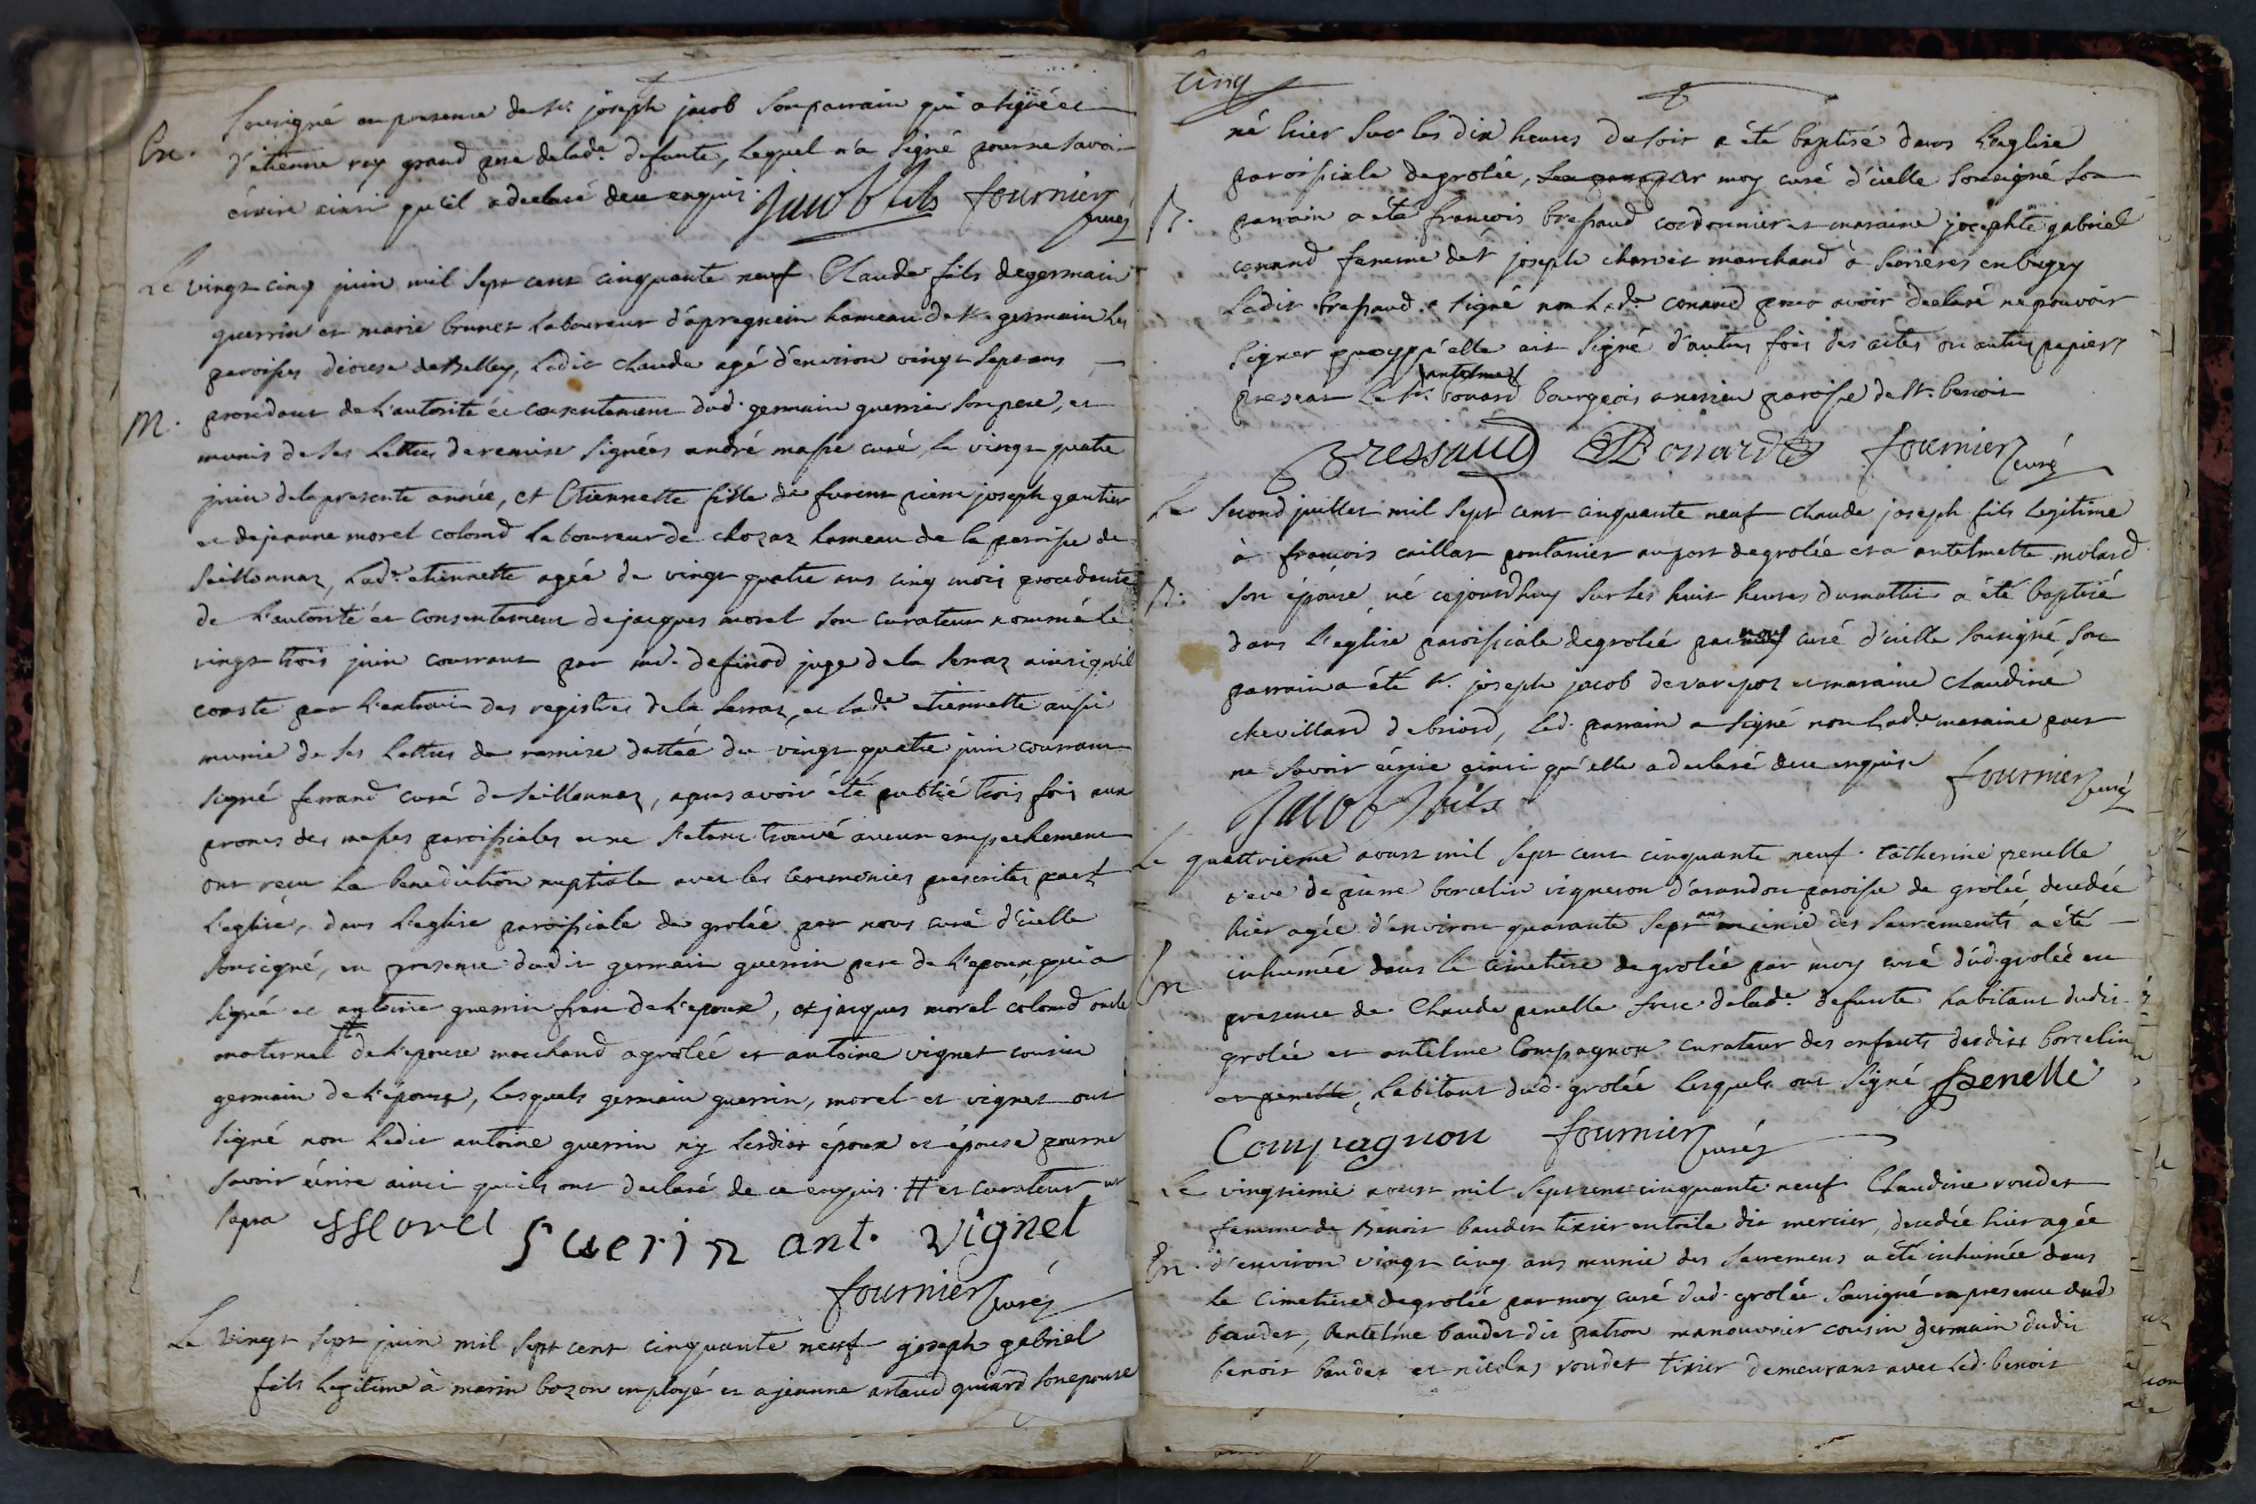 sousigné en presence de Sr. joseph jacob son parrain qui a signé et
En.
d'etienne rey grand pere de lade. defunte, lequel n'a signé pour ne savoir
écrire ainsi qu'il a declaré de ce enquis. Jacob fils fournier curé
Le vingt cinq juin mil sept cent cinquante neuf Claude fils de germain
guerrin et marie brunet laboureur d'apregnein hameau de St. germain les
paroisses diocese de Belley, ledit claude agé d'environ vingt sept ans
M.
procedant de l'autorité et consentement dud. germain guerrin son pere, et
munis de ses lettres de remise signées andré masse curé, le vingt quatre
juin de la presente année, et Etiennette fille de furent pierre joseph gautier
et de jeanne morel colomd laboureur de chozas hameau de la paroisse de
Seillonnaz, lade. etiennette agée de vingt quatre ans cinq mois procedante
de l'autorité et consentement de jacques morel son curateur nommé le
vingt trois juin courrant par mr. de finod juge de la serraz ainsi qu'il
conste par l'extrait des registres de la serraz, et lade. etiennette aussi
munie de ses lettres de remise dattée du vingt quatre juin courrant
signé ferrand curé de seillonnaz, apres avoir été publié trois fois aux
prones des messes paroissiales et ne s'etant trouvé aucun empechement
ont recu la benediction nuptiale avec les ceremonies prescrites par
l'eglise, dans l'eglise paroissiale de grolée par nous curé d'icelle
sousigné, en presence dudit germain guerrin pere de l'epoux, qui a
signé et antoine guerrin frere de l'epoux, et jacques morel colomd oncle
maternel # de l'epouse marchand a grolée et antoine vignet cousin
germain de l'épouse, lesquels germain guerrin, morel et vignet ont
signé non ledit antoine guerrin ny lesdits époux et épouse pour ne
savoir écrire ainsi qu'ils ont declaré de ce enquis. # et curateur ut
supra Morel guerin ant. vignet
fournier curé
Le vingt sept juin mil sept cent cinquante neuf joseph gabriel
fils legitime à marin bozon employé et a jeanne artaud quiard son epouse
cinq
né hier sur les dix heures du soir a été baptisé dans l'eglise
paroissiale de grolée, par moy curé d'icelle sousigné son
B.
parrain a été francois bressaud cordonnier et maraine josephte gabriel
conand femme de Sr joseph charvet marchand à serrieres en bugey
ledit bressaud a signé non lade. conand pour avoir declaré ne pouvoir
signer quoyqu'elle ait signé d'autres fois des actes ou autres papiers
antelme
present le Sr. bonard bourgeois a nerrieu paroisse de St. benoit
Bressaud Bonard fournier curé
Le second juillet mil sept cent cinquante neuf claude joseph fils legitime
à francois caillat pontanier au port de grolée et a antelmette molard
B.
son épouse, né cejourdhuy sur les huit heures du mattin a été baptisé
dans l'eglise paroissiale de grolée par nous curé d'icelle sousigné, son
parrain a été Sr. joseph jacob de varepoz et maraine claudine
chevillard de briord, led. parrain a signé non lade. maraine pour
ne savoir écrire ainsi qu'elle a declaré de ce enquise fournier curé
Jacob fils
Le quattrieme aoust mil sept cent cinquante neuf. Catherine penelle
veve de pierre borcelin vigneron d'arandon paroisse de grolée decedée
hier agée d'environ quarante sept ans munie des sacrements a été
En
inhumée dans le cimetiere de grolée par moy curé dud. grolée en
presence de Claude penelle frere de lade. defunte habitant dudit
grolée et antelme Compagnon curateur des enfents desdits borcelin
et penelle, habitant dud. grolée lesquels ont signé penelle
Compagnon fournier curé
Le vingtieme aoust mil sept cent cinquante neuf Claudine roudet
femme de Benoit baudet tixier en toile dit mercier, decedée hier agée
En.
d'environ vingt cinq ans munie des sacremens a été inhumée dans
le cimetiere de grolée par moy curé dud. grolée sousigné en presence dud
baudet, Antelme baudet dit patron manouvrier cousin germain dudit
benoit baudet et nicolas roudet tixier demeurant avec led. benoit